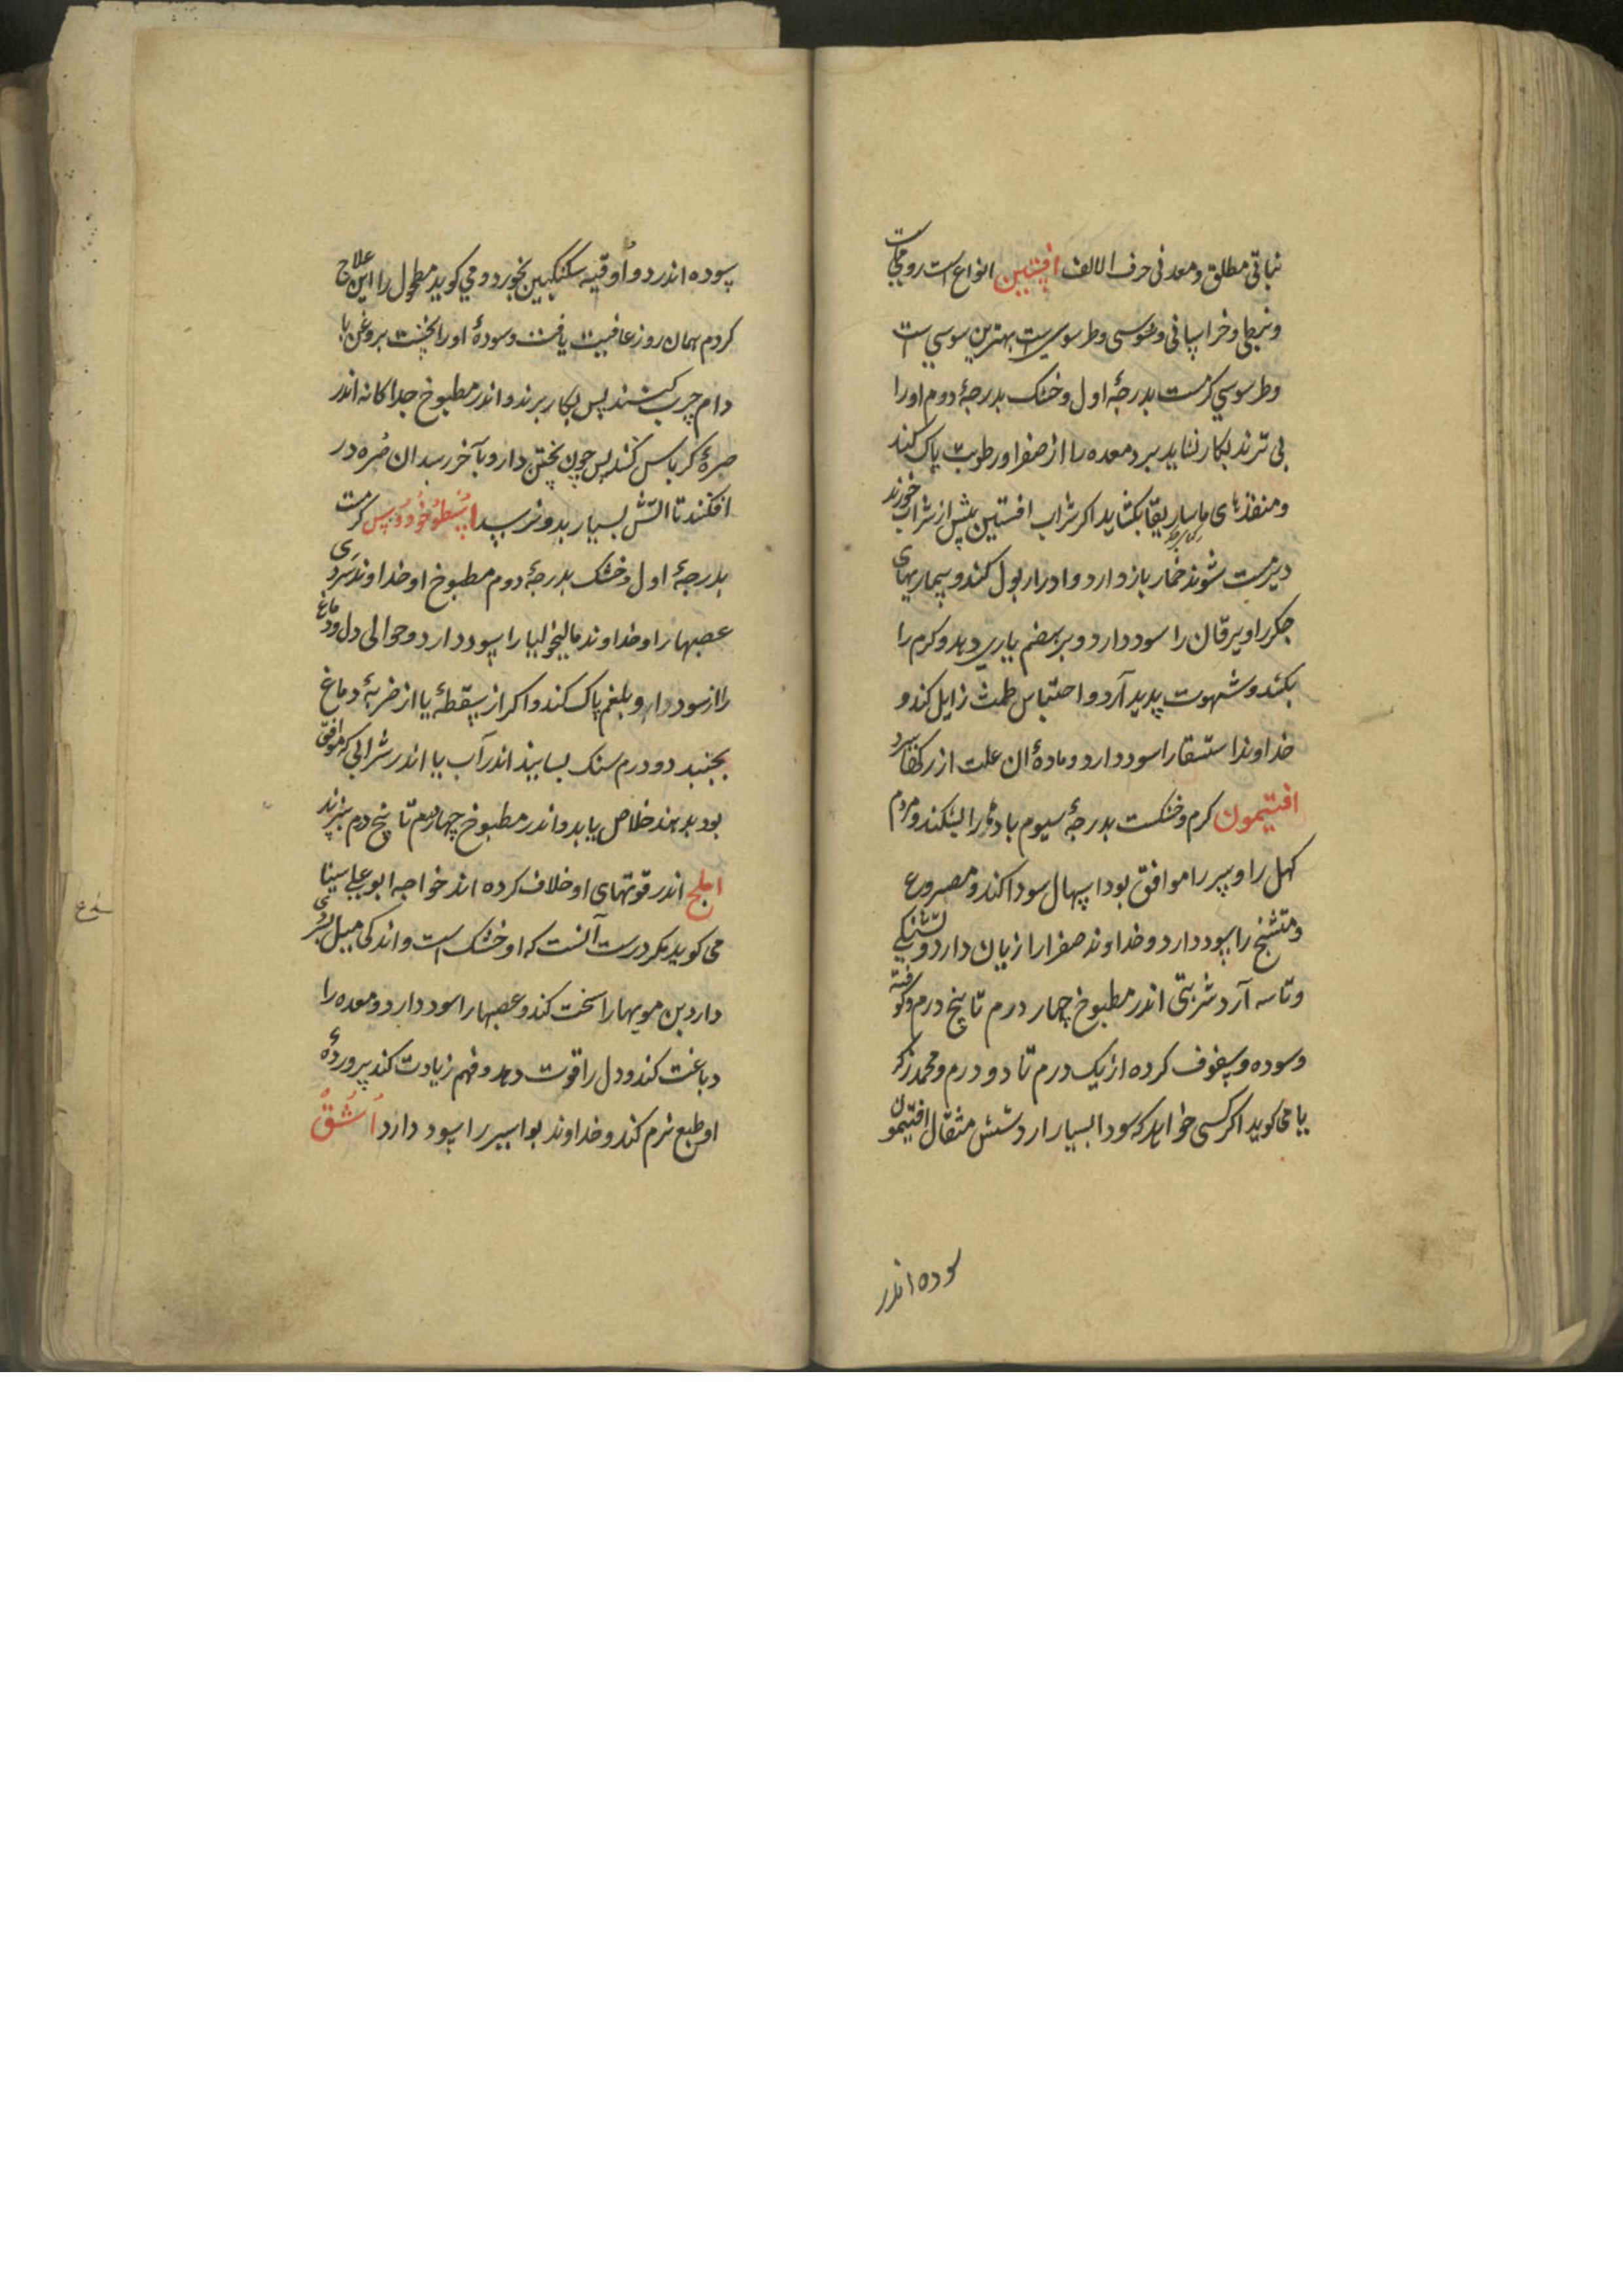 نباتی مطلق و معدنی حرف الالف افسنتین انواع است رومیست
و نبطی و خراسانی و سوسی و طرسوسی است بهترین سوسی ست
و طرسوسی کرمست بدرجهٔ اول و خشک بدرجهٔ دوم او را
بی ترند بکار نشاید برد معده را از صفرا و رطوبت پاک کند
و منفذهای ماساریقا بکشاید اکر شراب افسنتین پیش از شراب خورند
دیر مست شوند خمار باز دارد و ادرار بول کند و بیماریهای
جکر را و یرقان را سود دارد و بر هضم یاری دهد و کرم را
بکشد و شهوت پدید آرد و احتباس طمث زایل کند و
خداوند استسقا را سود دارد و مادهٔ ان علت از رکها ببرد
افتیمون کرم و خشکست بدرجهٔ سیوم بادها را بشکند و مردم
کهل را و پیر را موافق بود اسهال سودا کند و مصروع
و متشنج را سود دارد و خداوند صفرا را زیان دارد و تشنکی
و تاسه آرد شربتی اندر مطبوخ چهار درم تا پنج درم و کوفته
و سوده و سفوف کرده از یک درم تا دو درم و محمد زکر
یا می کوید اکر کسی خواهد که سودا بسیار ارد شش مثقال افتیمون
سوده اندر
سوده اندر دو اوقیه سکنکبین بخورد و می کوید مطحول را این علاج
کردم همان روز عافیت یافت و سودهٔ او را نخست بروغن با
دام چرب کنند پس بکار برند و اندر مطبوخ جداکانه اندر
صرهٔ کرباس کنند پس چون پختن دارو بآخر رسد ان صره در
افکنند تا آتش بسیار بدو نرسد اسطوخودوس کرمست
بدرجهٔ اول و خشک بدرجهٔ دوم مطبوخ او خداوند سردی
عصبها را و خداوند مالیخولیا را سود دارد و حوالی دل و دماغ
را از سودا و بلغم پاک کند و اکر از سقطهٔ یا از ضربهٔ دماغ
بجنبد دو درم سنک بسایند اندر آب یا اندر شرابی که موافق
بود بدهند خلاص یابد و اندر مطبوخ چهار درم تا پنج درم بپزند
املج اندر قوتهای او خلاف کرده اند خواجه ابو علی سینا
می کوید مکر درست آنست که او خشک است و اندکی میل بسردی
دارد بن مویها را سخت کند و عصبها را سود دارد و معده را
دباغت کند و دل را قوت دهد و فهم زیادت کند پروردهٔ
او طبع نرم کند و خداوند بواسیر را سود دارد اُشَّقْ